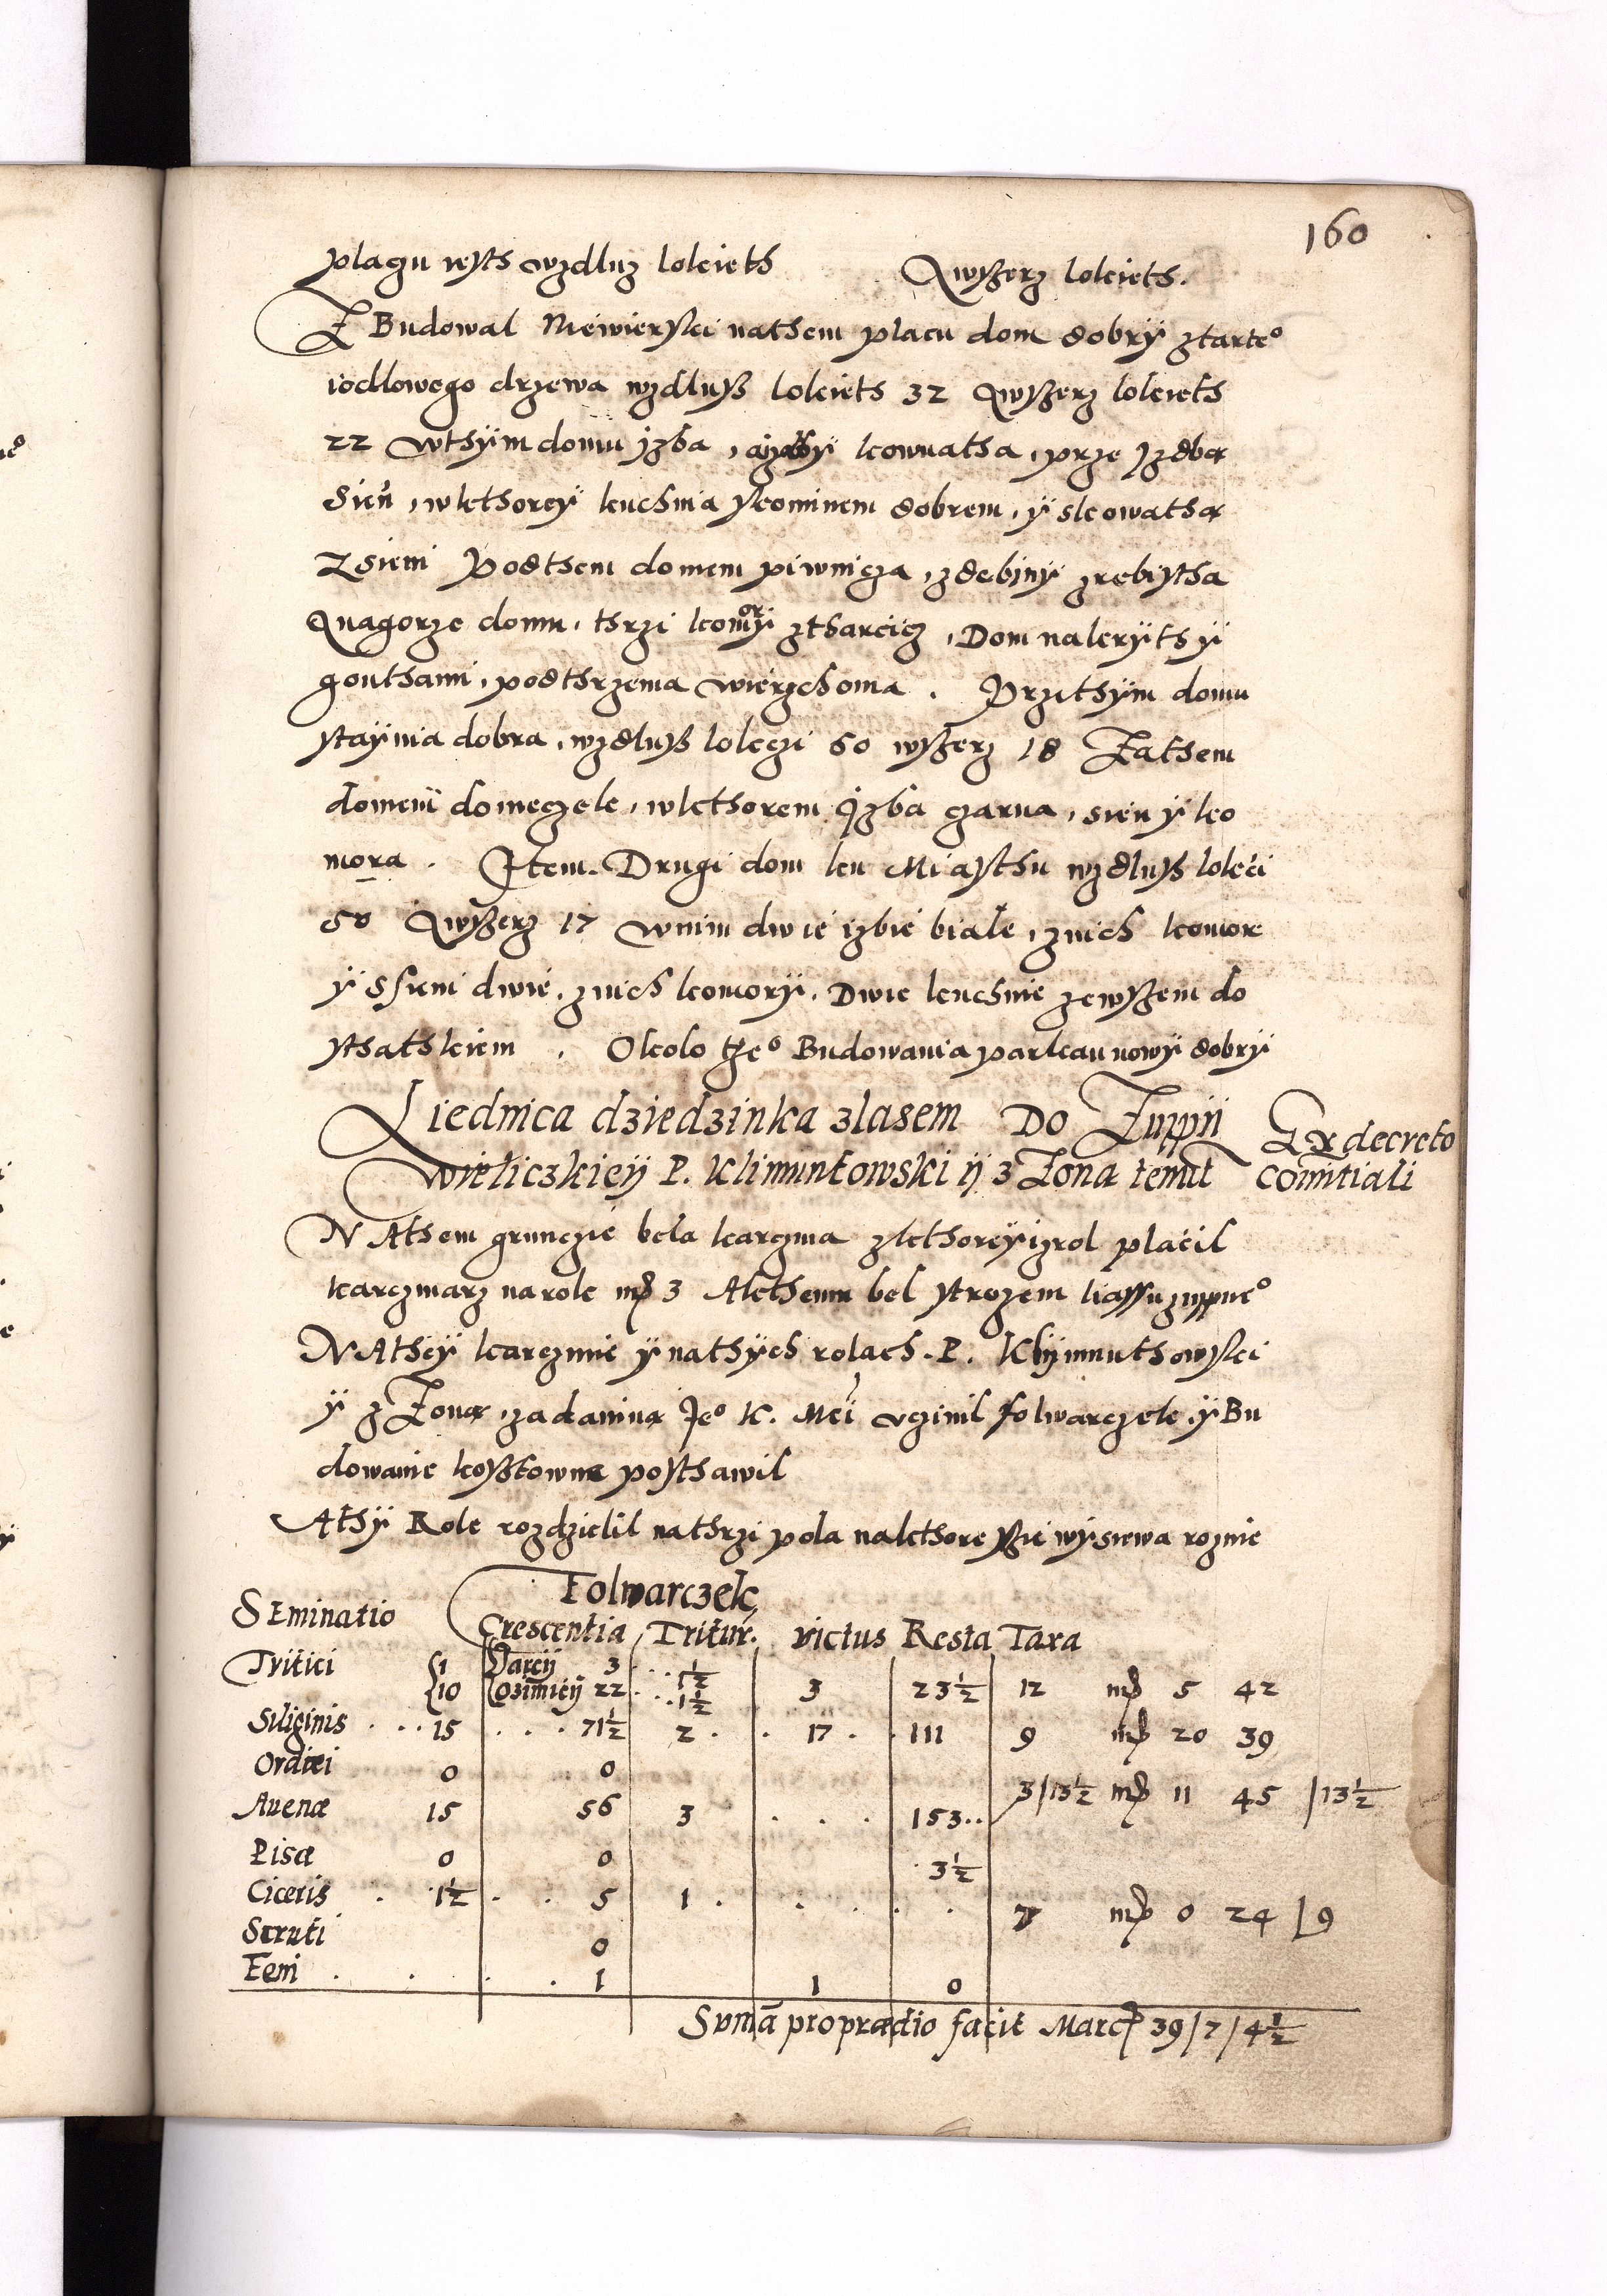 160
placzu iesth wzdluz lokieth        Qwyßerz lokieth.
Z Budowal Niewierski nathem placu dom dobrÿ ztarte⁰
iodlowego drzewa wzdluß lokieth 32 Qwyßerz lokieth
22 wthÿm domu jzba, kownatha, prze Jzdbą
Sień, wkthoreÿ kuchnia skominem dobrem, ÿ skowathą
zsieni Podthem domem piwnicza, zdebinÿ zrebistha
Qnagorze domu, thrzi komorÿ ztharcicz, Dom nakrÿth ÿ
gonthami, podthrzema wierzchoma. Przithÿm domu
staÿnia dobra, wzdluß lokczi 50 wyßerz 18 Zathem
domem domeczek, wkthorem Jzba czarna, sien ÿ ko
mora. Item. Drugi dom ku Miasthu wzdluß lokći
50 Qwyßerz 17 wnim dwie izbie biale, znich komore
ÿ ssieni dwie, znich komorÿ, Dwie kuchnie zewßem do
sthathkiem. Okolo tze⁰ Budowania parkan nowÿ dobrÿ
Liednica dziedzinka zlasem DO Zuppÿ
wieliczkieÿ P. Klimuntowski ÿ z Zoną tenut
Ex decreto
comitiali
NAthem grunczie bela karczma zkthoreÿ izrol płacil
karczmarz narole mrc 3 Akthemu bel strozem liassu zuppne⁰
NAtheÿ karczmie ÿ nathÿch rolach. P. Klÿmunthowski
ÿ z Zoną, zadaniną Je⁰ K. Mći vczinil folwarczek, ÿ Bu
dowanie koßtowne posthawil
Athÿ Role rozdzielil nathrzi pola nakthore ssie wÿsiewa roznie
Folwarczek
SEminatio Crescentia Tritur. victus Resta Taxa
Tritici 1 Jareÿ 3 ½
10 Ozimieÿ 22 1½ 3 23½ 12 mrc 5 42
Siliginis 15 71½ 2 17 111 9 mrc 20 39
Ordei 0 0
Auenæ 15 56 3 153 3/13½ mrc 11 45 /13½
Pisæ 0 0 3½
Ciceris 1½ 5 1 7 mrc 0 24 /9
Struti 0
Feni 1 1 0
Sumā pro prædio facit Marc 39/7/4½